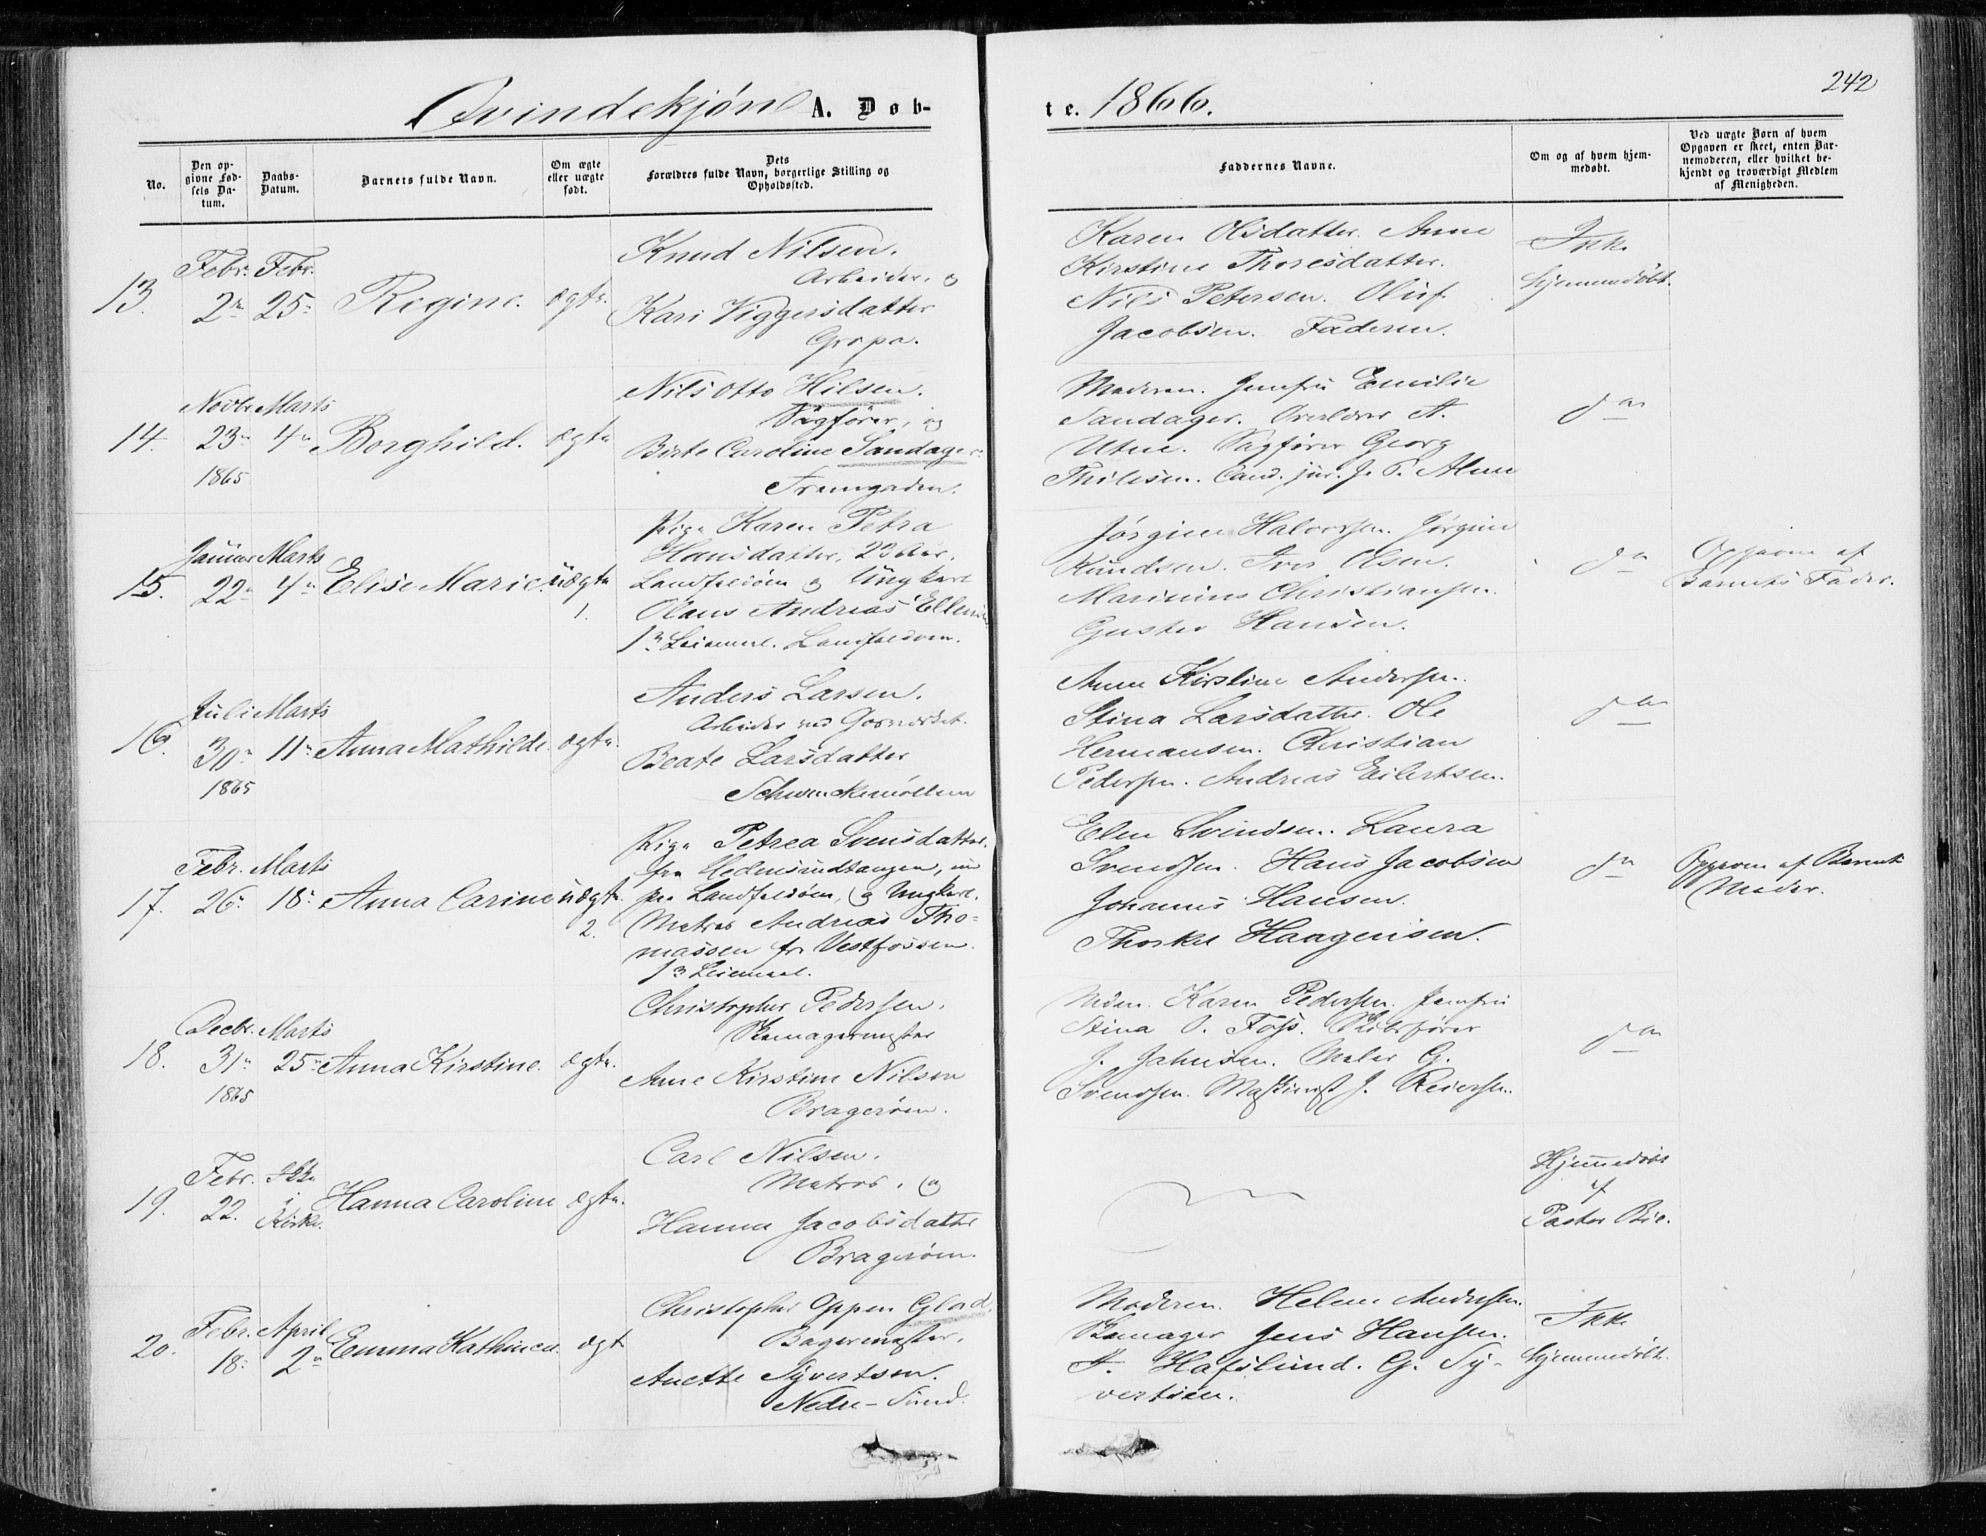 242
Qvindekjøn A. Døb-
te. 1866.
No.
Den op-
givne Fød-
sels Da-
tum.
Daabs-
Datum.
Barnets fulde Navn.
Om ægte
eller uægte
født.
Dets
Forældres fulde Navn, borgerlige Stilling og
Opholdssted.
Faddernes Navne.
Om og af hvem hjem-
medøbt.
Ved uægte Børn af hvem
Opgaven er skeet, enten Bar-
nemoderen, eller hvilket be-
kjendt og troværdigt Medlem
af Menigheden.
13.
Febr.
2
Febr.
25
Regine.
ægte.
Knud Nilsen.
Arbeider. og
Kari Viggersdatter
Gropa.
Karen Olsdatter. Anne
Kirstine Thoresdatter.
Nils Petersen. Oluf
Jacobsen. Faderen.
Ikke
hjemmedøbt.
14.
Novbr
23
1865
Marts
4
Borghild.
ægte
Nils Otto Hilsen.
Sagfører, og
Birte Caroline Sandager
Fremgaden.
Moderen. Jomfru Emilie
Sandager. Overlærer A.
Utne. Sagfører Georg
Thilesen. Cand. jur. J. P. Alme
do
15.
Januar
22
Marts
4
Elise Marie.
uægte
1.
Pige Karen Petra
Hansdatter, 23 Aar.
Landfaldøen og Ungkarl
Olaus Andreas Ellen
1 Leierml. Landfaldøen.
Jørgine Halvorsen. Jørgine
Knudsen. Iver Olsen.
Marinius Christiansen.
Gustav Hansen.
do
Opgaven af
Barnets Fader.
16.
Juli
30
1865
Marts
11
Anna Mathilde.
ægte.
Anders Larsen.
Arbeider ved Gasværket.
Beate Larsdatter
Schwenckemøllen
Anne Kirstine Andersen.
Stina Larsdatter. Ole
Hermansen. Christian
Pedersen. Andreas Eilertsen.
do
17.
Febr.
26
Marts
18
Anna Carine
uægte.
2.
Pige Petrea Svensdatter.
fra Hedensrudtangen, nu
paa Landfaldøen, og Ungkarl.
Matros Andreas Tho-
massen fr Vestfossen.
1 Leiermaal.
Elen Svendsen. Laura
Svendsen. Hans Jacobsen
Johannes Hansen.
Thorkel Haagensen.
do
Opgaven af Barnets
Moder.
18.
Decbr.
31
1865
Marts
25
Anna Kirstine.
ægte.
Christopher Pedersen.
Skomagermester
Anne Kirstine Nilsen
Bragerøen.
Mdm. Karen Pedersen. Jomfru
Stina O. Foss. Skibsfører
J. Jahnsen. Maler G.
Svendsen. Maskinist J. Reiersen.
do
19.
Febr.
22.
Ikke
i
Kirke.
Hanna Caroline
ægte.
Carl Nilsen.
Matros. og
Hanna Jacobsdatter
Bragerøen.
Hjemmedøbt
af
Pastor Bie.
20.
Febr.
18
April
2
Emma Kathinca
ægte
Christopher Oppen Glad.
Bagermester.
Anette Syvertsen.
Nedre-Sund.
Moderen. Helene Andersen.
Skomager Jens Hansen.
F. Hafslund. G. Sy-
vertsen.
Ikke
hjemmedøbt.